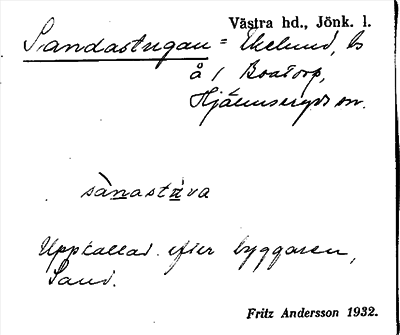 Västra hd., Jönk. l.
Sandastugan = Ekelund, ls
å 1 Boatorp,
Hjälmseryds sn.
sànastùva
Uppkallad efter byggaren,
Sand.
Fritz Andersson 1932.